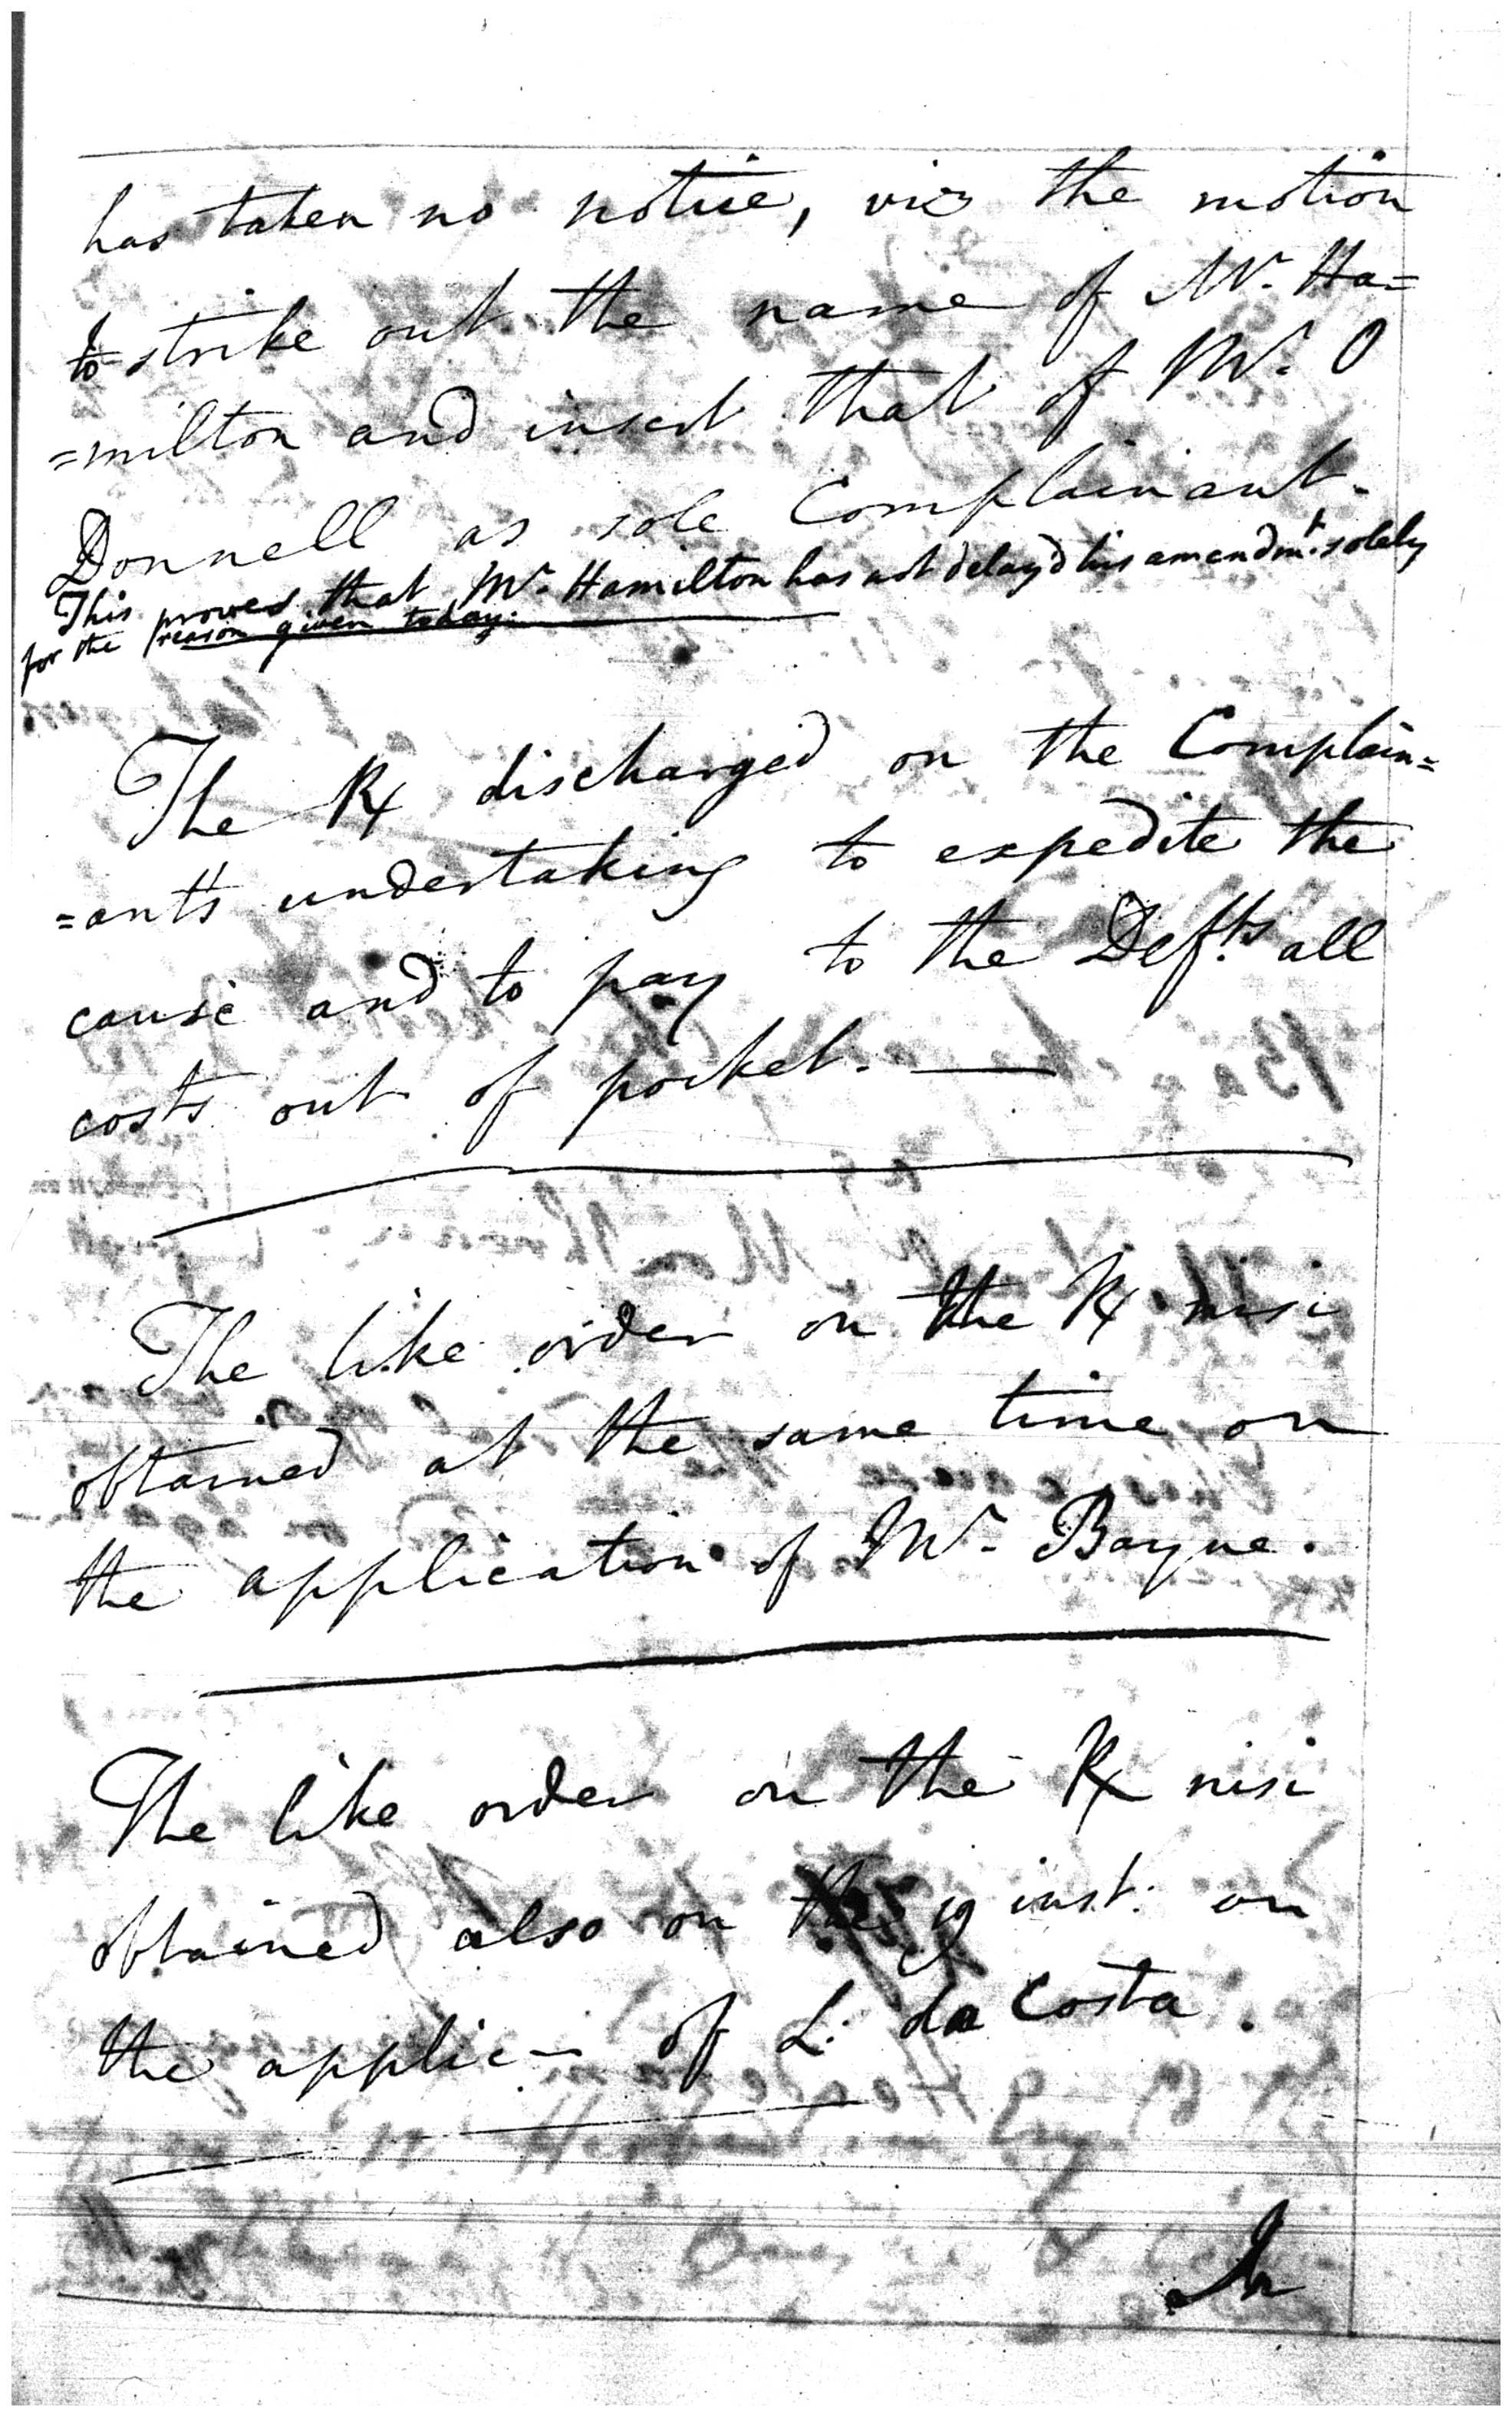 has taken no notice, viz the motion
to strike out the name of Mr. Ha=
=milton and insert that of Mr. O
Donnell as sole Complainant.
This proves that Mr. Hamilton has not delay'd his amendmt. solely
for the reason given today.
The R discharged on the Complain=
=ant's undertaking to expedite the
cause and to pay to the Defts. all
costs out of pocket.
The like order on the R nisi
obtained at the same time on
the application of Mr. Bayne.
The like order on the R nisi
obtained also on the 19 inst. on
the applic- of L. da Costa.
In